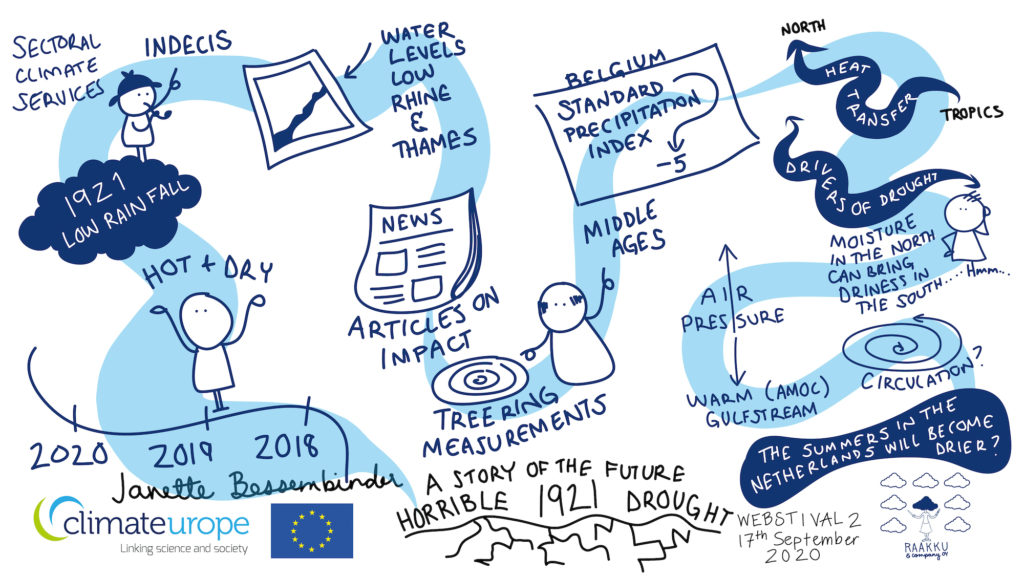 SECTORAL
CLIMATE
SERVICES
INDECIS
1921
LOW RAIN FALL
HOT + DRY
2020
2019
2018
Janette Bessembinder
climateurope
Linking science and society
WATER
LEVELS
LOW
RHINE
&
THAMES
NEWS
ARTICLES ON
IMPACT
TREE RING
MEASUREMENTS
MIDDLE
AGES
BELGIUM
STANDARD
PRECIPITATION
INDEX
-5
A STORY OF THE FUTURE
HORRIBLE 1921 DROUGHT
NORTH
HEAT
TRANSFER
TROPICS
DRIVERS OF DROUGHT
MOISTURE
IN THE NORTH
CAN BRING
DRINESS IN
THE SOUTH....
Hmm...
AIR
PRESSURE
WARM (AMOC)
GULFSTREAM
CIRCULATION?
THE SUMMERS IN THE
NETHERLANDS WILL BECOME
DRIER?
WEBSTIVAL 2
17th September
2020
RAAKKU
& company oy